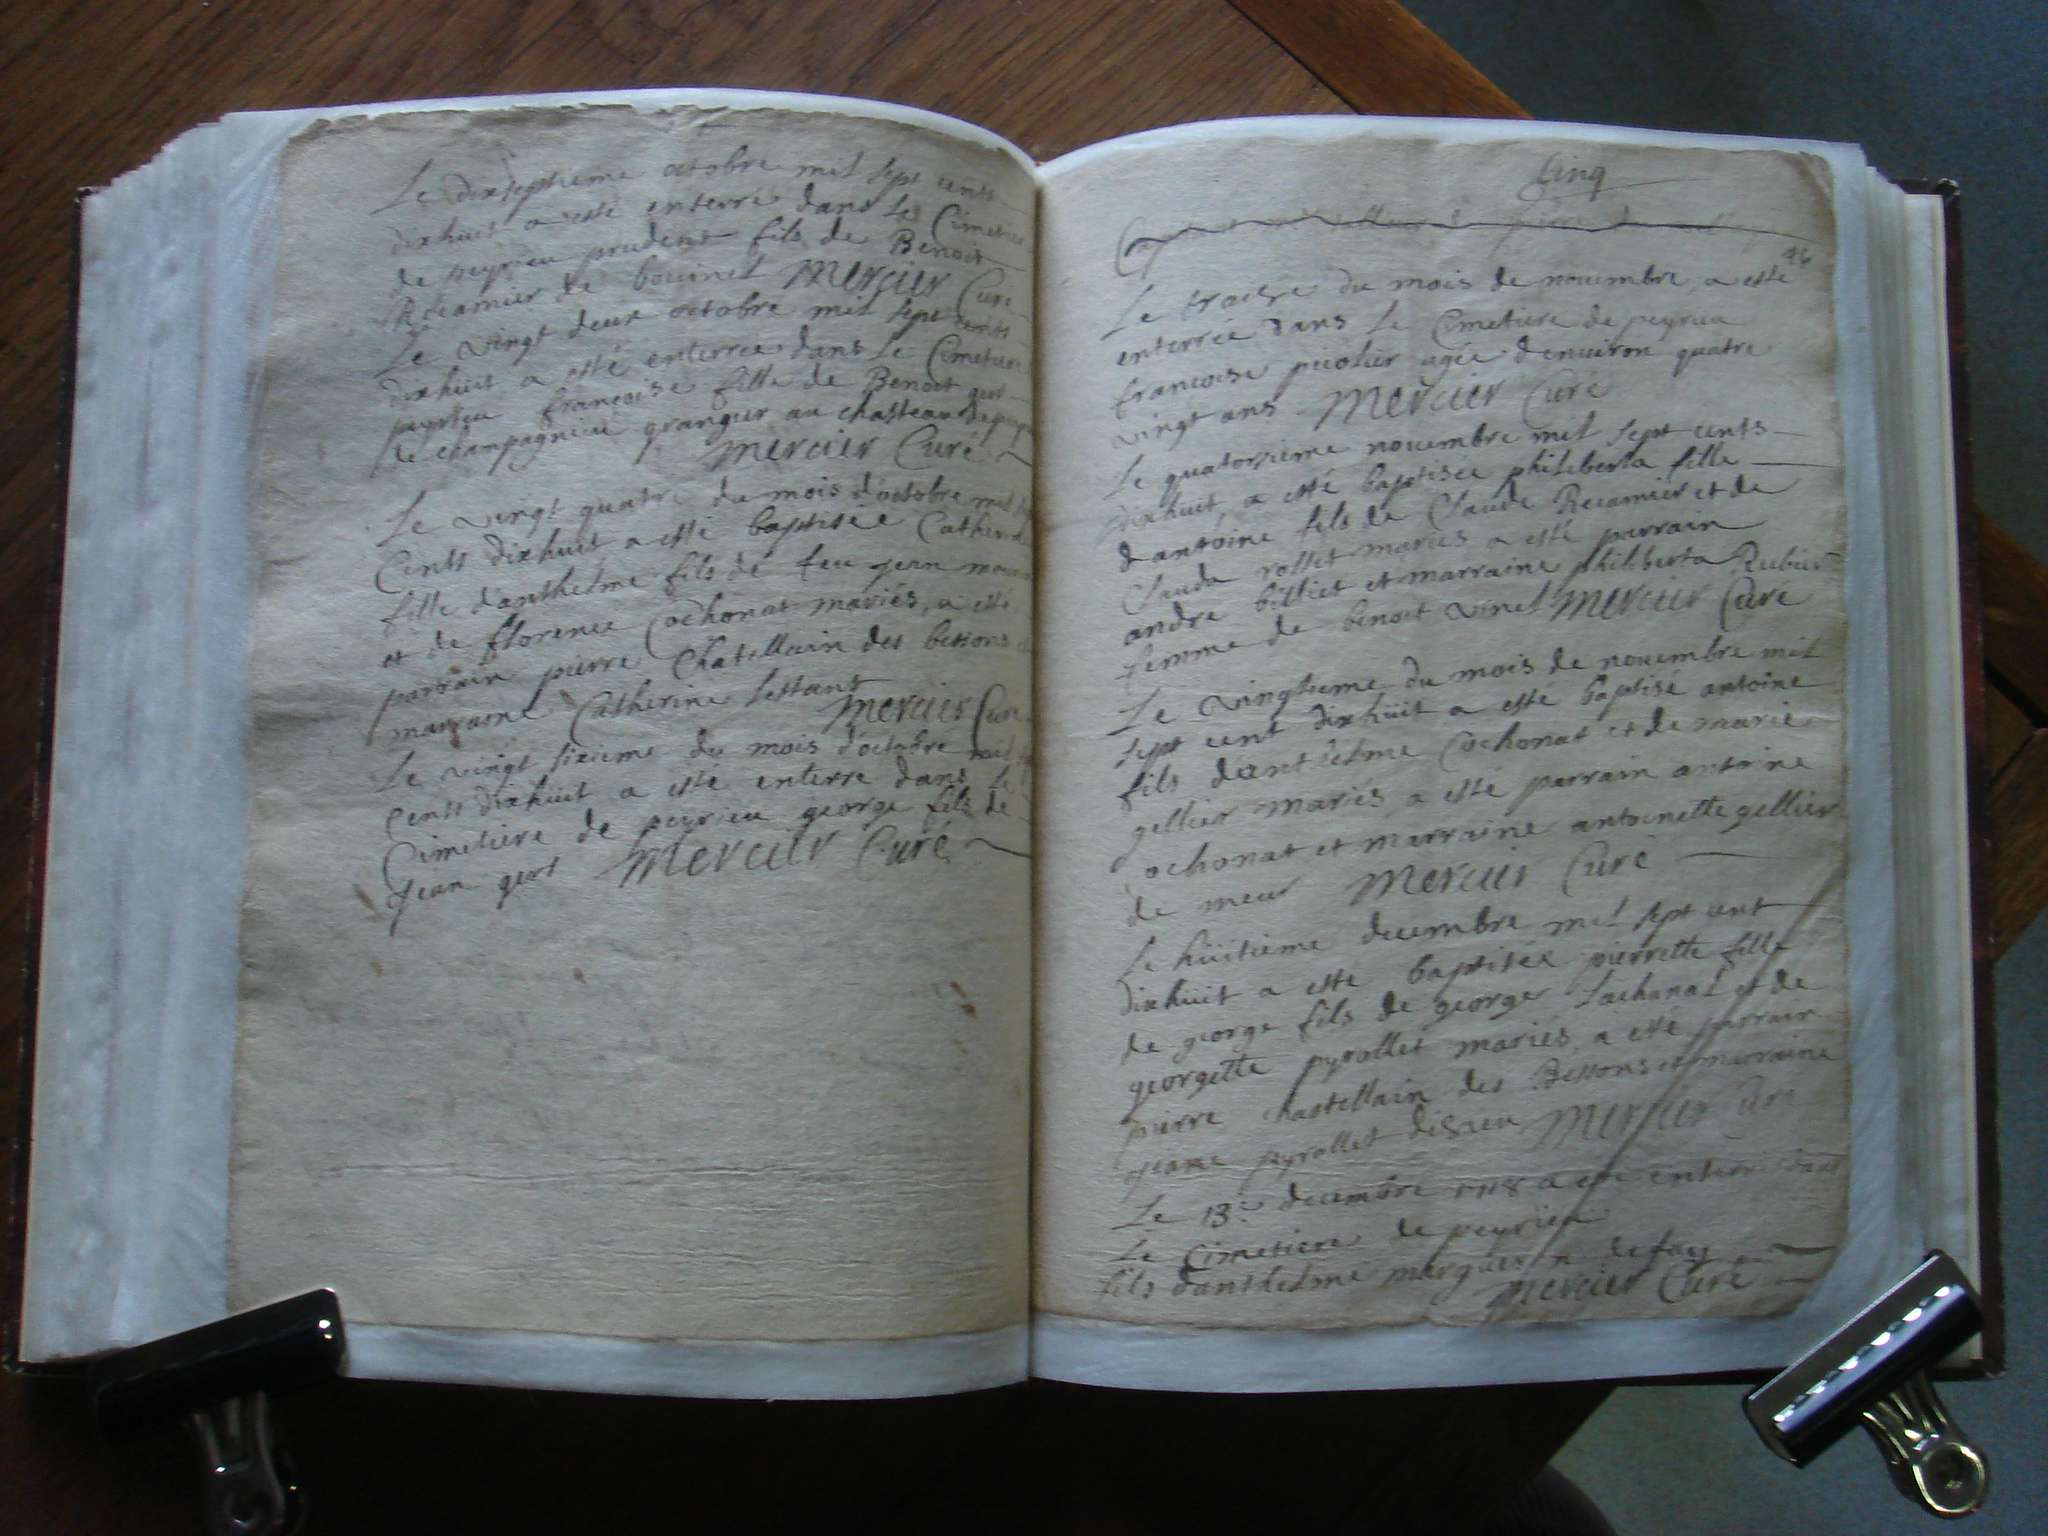 Le dixseptieme octobre mil sept cents
dixhuit a esté enterré dans le Cimetiere
de peyrieu prudent fils de Benoit
Recamier de bovinel Mercier Curé
Le vingt deux octobre mil sept cents
dixhuit a esté enterrée dans le Cimetiere
peyrieu francoise fille de Benoit
de champagnieu granger au chasteau de
Mercier Curé
Le vingt quatre du mois d'octobre mil
Cents dixhuit a esté baptisée Catherine
fille d'anthelme fils de feu jean
et de florence Cochonat mariés, a esté
parrain pierre Chatellain des bessons
marraine Catherine lestant
Mercier Curé
Le vingt sixieme du mois d'octobre mil
Cents dixhüit a esté enterre dans le
Cimetiere de peyrieu george fils de
Jean Mercier Curé
Cinq
46
Le traeze du mois de nouembre, a esté
enterrée dans le Cimetiere de peyrieu
francoise agée denuiron quatre
vingt ans Mercier Curé
Le quatorzieme nouembre mil sept cents
dixhuit, a esté baptisée philiberta fille
dantoine fils de Claude Recamier et de
Clauda rosset mariés a esté parrain
andre billiet et marraine philiberta
femme de benoit vinel Mercier Curé
Le vingtieme du mois de nouembre mil
sept cent dixhüit a esté baptisé antoine
fils dantelme Cochonat et de marie
gellier mariés a esté parrain antoine
ochonat et marraine antoinette gellier
de meur Mercier Curé
Le hüitieme decembre mil sept cent
dixhüit a esté baptisée pierrette fille
de george fils de george Lachanal et de
georgette pyrollet mariés, a esté parrain
pierre chastellain des Bessons et marraine
jeane pyrollet disrieu Mercier Curé
Le 13e decembre 1718 a esté enterré dans
Le Cimetiere de peyrieu
fils danthelme marguer n de fay
Mercier Curé